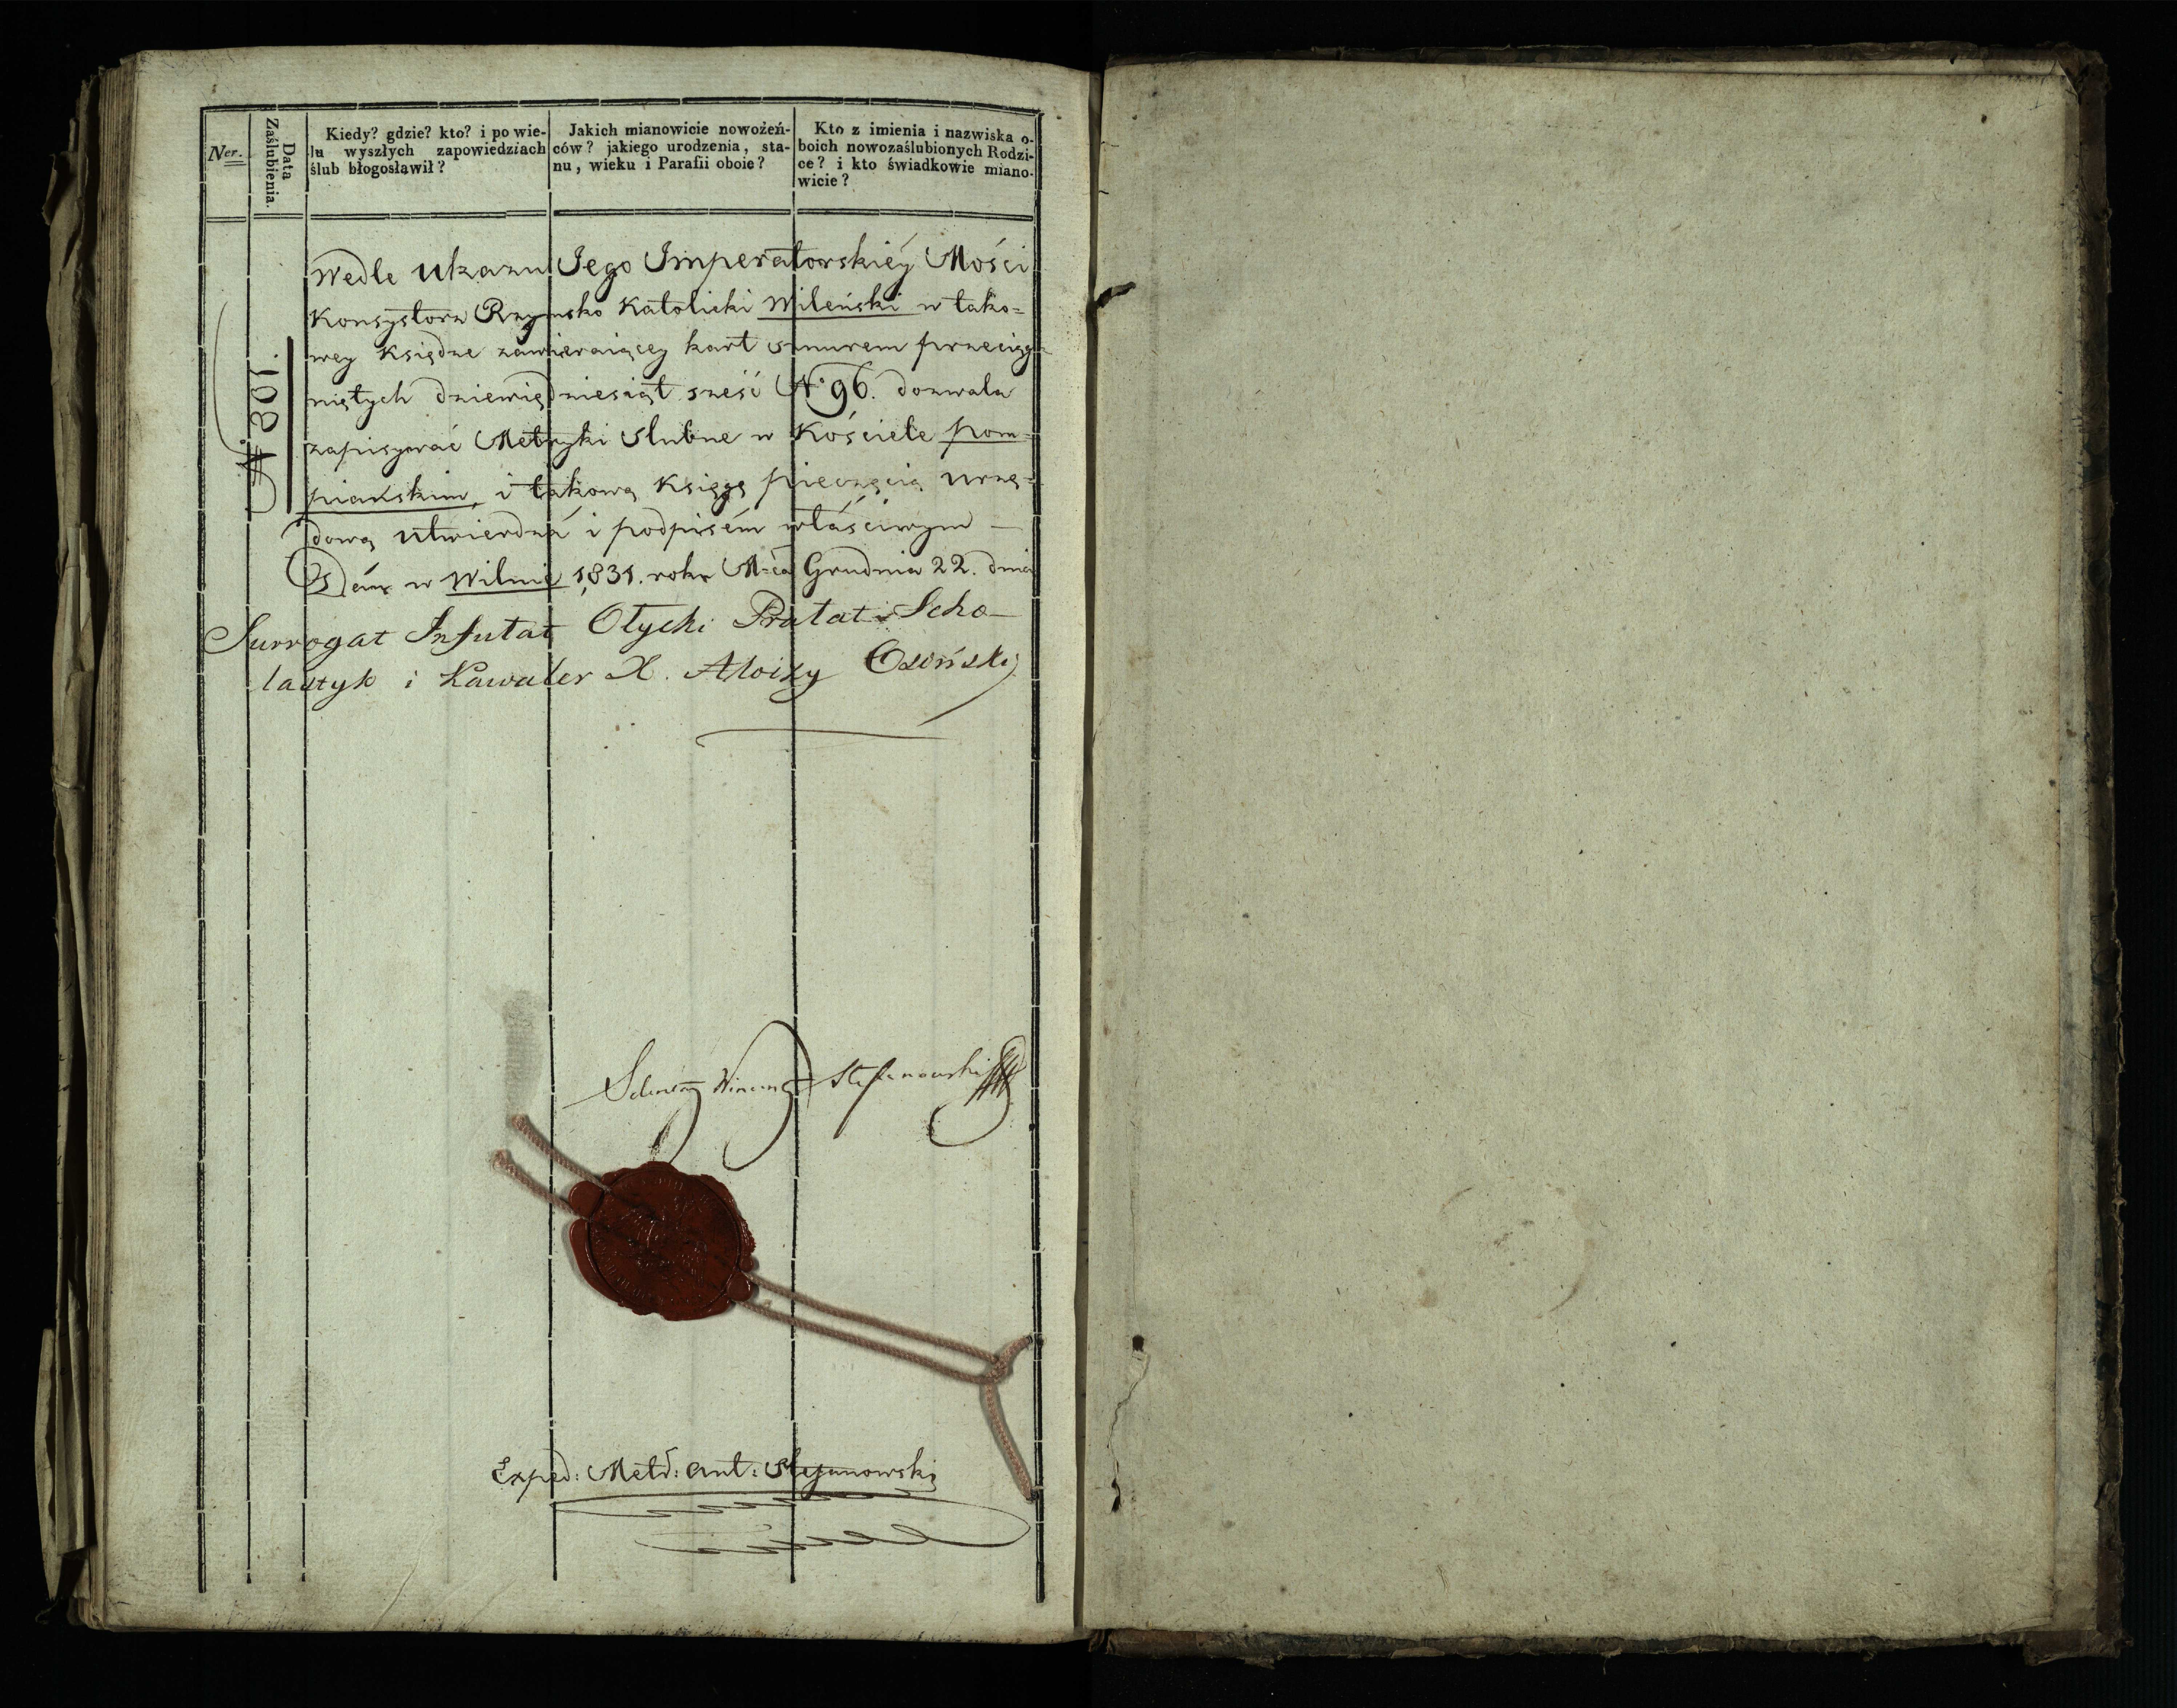 Ner.
Data
Zaślubienia.
Kiedy? gdzie? kto? i po wie-
lu wyszłych zapowiedziach
ślub błogosławił?
Jakich mianowicie nowożeń-
ców? jakiego urodzenia, sta-
nu, wieku i Parafii oboie?
Kto z imienia i nazwiska o-
boich nowozaślubionych Rodzi-
ce? i kto świadkowie miano-
wicie?
N 801.
Wedle ukazu Jego Imperatorskiéy Mości
Konsystorz Rzymsko Katolicki Wileński w tako=
wey Księdze zawieraiącey kart sznurem przeciąg=
niętych dziewiędziesiąt sześć N° 96. dozwala
zapisywać Metryki Slubne w Kościele pom=
piańskim, i takową Księgę pieczęcią urzę=
dową utwierdza i podpisém właściwym —
Dań w Wilnie 1831. roku M-ca Grudnia 22. dnia
Surrogat Infułat Ołycki Prałat Scho-
lastyk i Kawaler X. Aloizy Osiński
Sekretarz Wincenty Stefanowski
Exped: Metr: Ant: Stefanowski